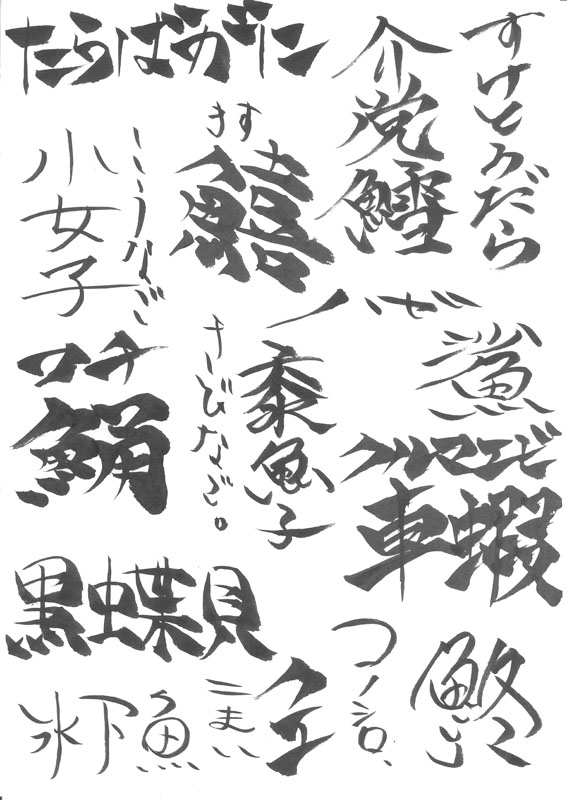 たらばがに
すけとうだら
介党鱈
きす
鱚
こうなご
小女子
ハゼ
鯊
コチ
鯒
きびなご。
黍魚子
クルマエビ
車蝦
黒蝶貝
鮗
コノシロ
クエ
こまい
氷下魚